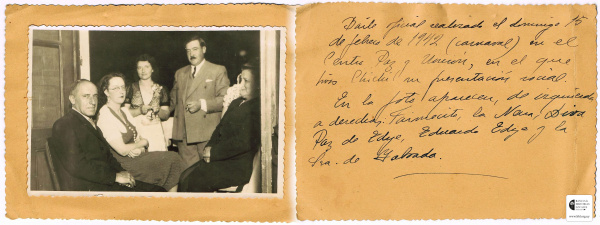 Baile oficial realizado el domingo 15
de febrero de 1942 (carnaval) en el
Centro Paz y Unión, en el que
hizo su presentación social.
En la foto aparecen, de izquierda
a derecha: la Diva
Paz de Edye, Eduardo Edye y la
Sra. de